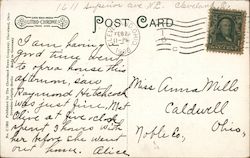 1611 Superior Ave N.E. Cleveland O.
POST CARD
LITHO-CHROME
I am having
good time. Went
to opera house this
afternoon, saw
Raymond Hitchcock
was just fine. Met
Clive at five o'clock
spent 3 hours with
her before she went
out home. Alice
Miss Anna Mills
Caldwell
Noble Co.
Ohio.